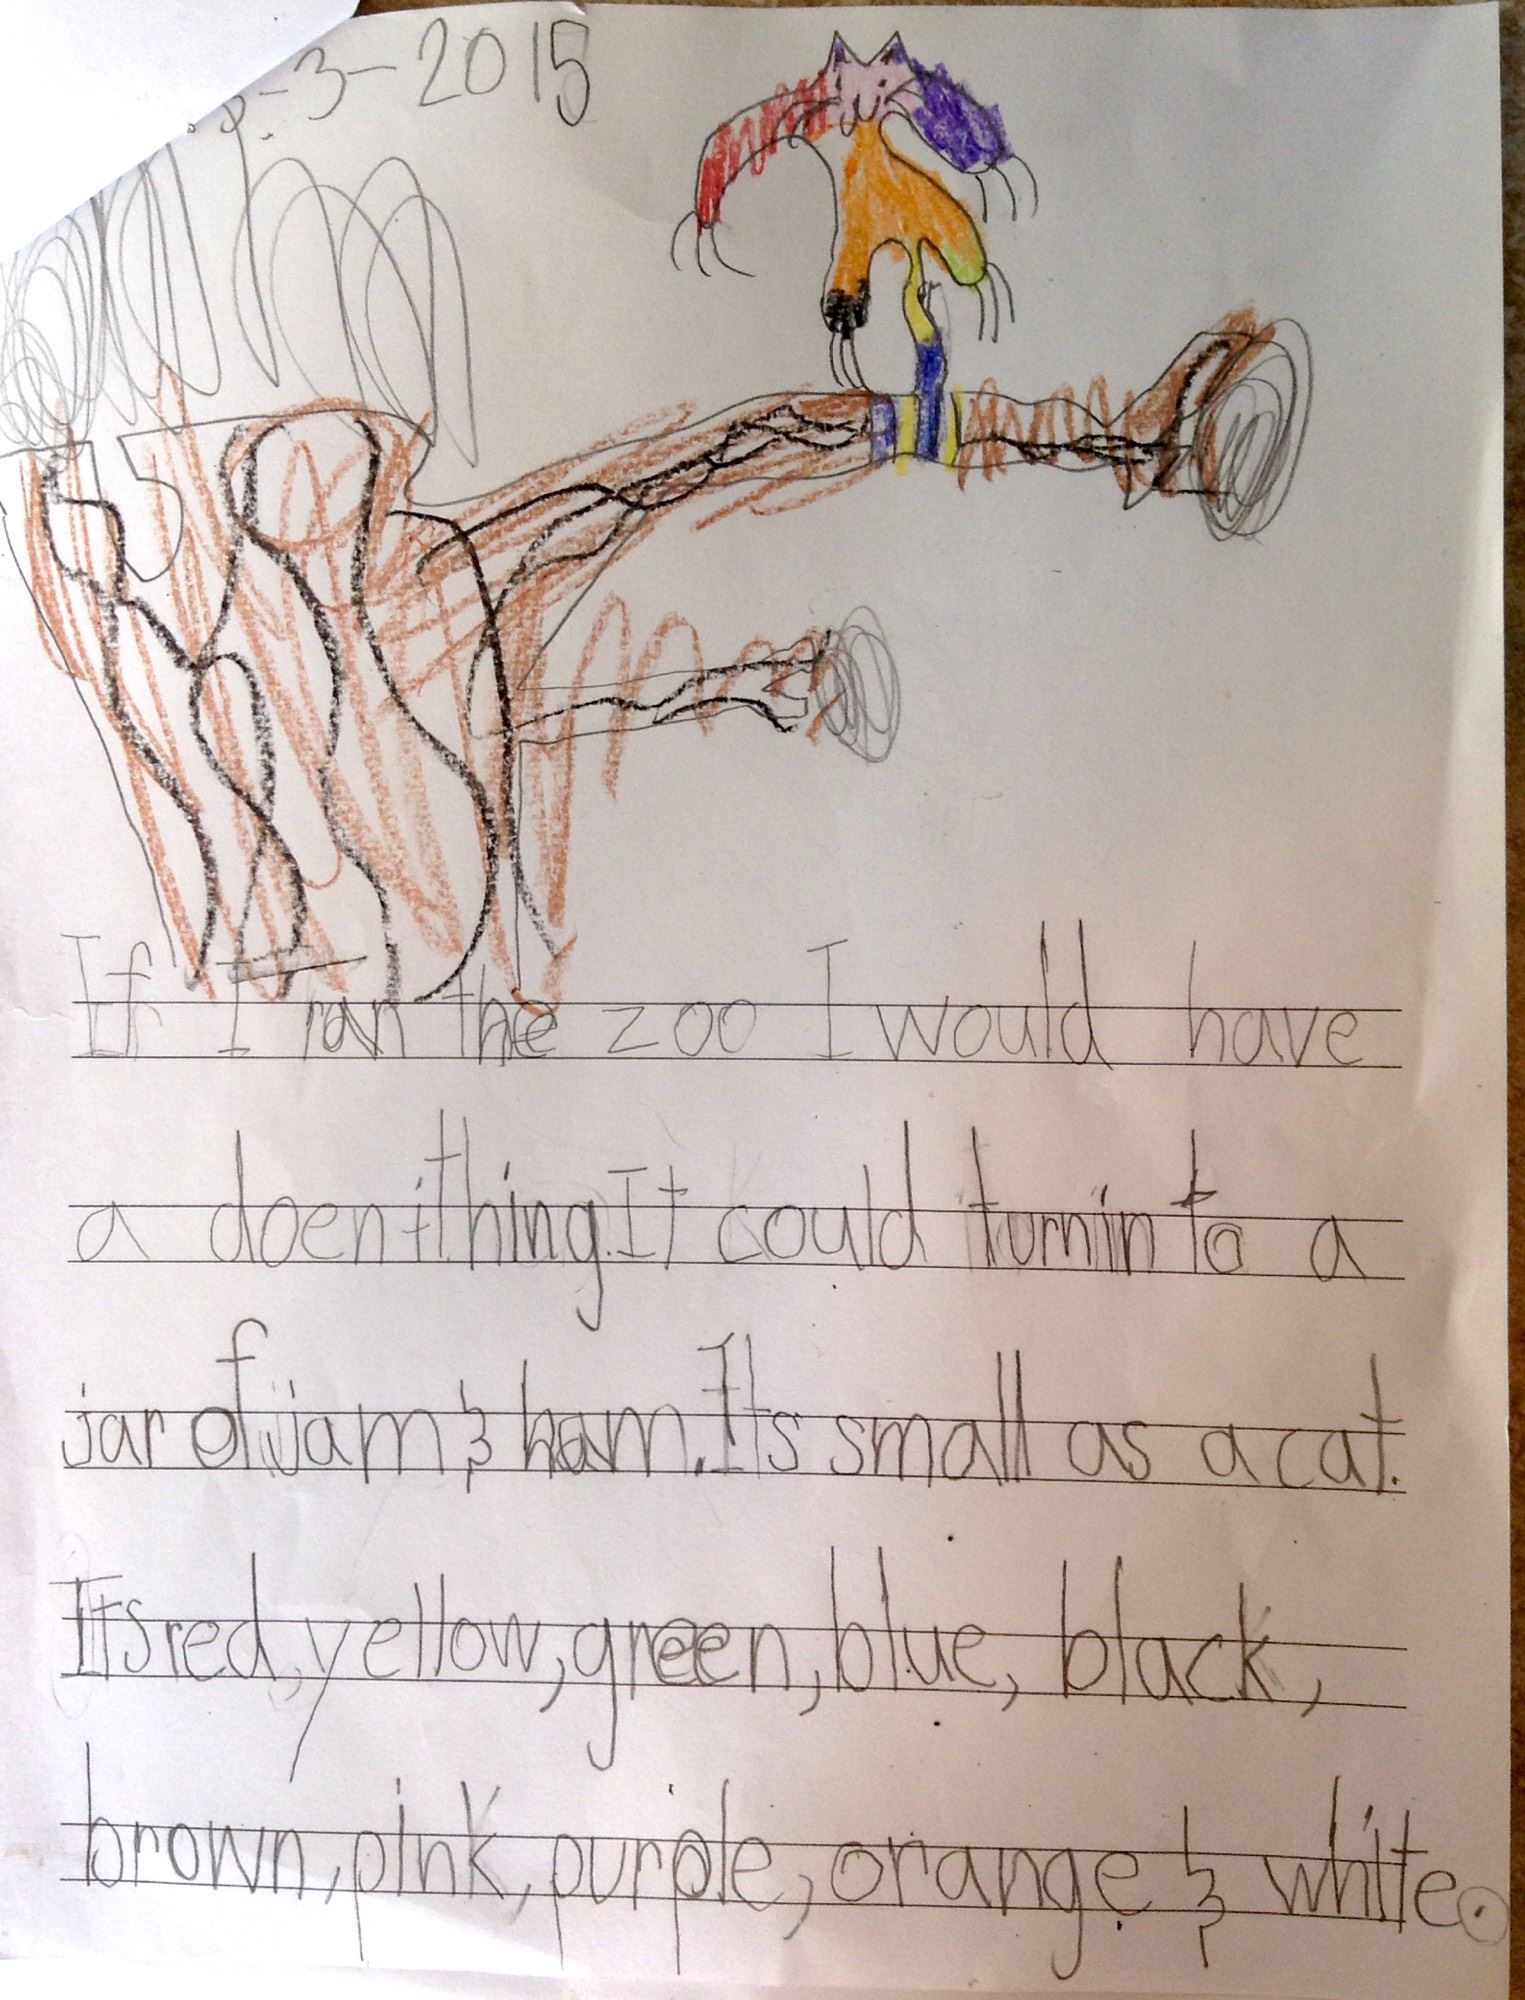 3-2015
If I ran the zoo I would have
a doenithing. It could turn into a
jar of jam & ham. Its small as a cat.
Its red, yellow, green, blue, black,
brown, pink, purple, orange & white.